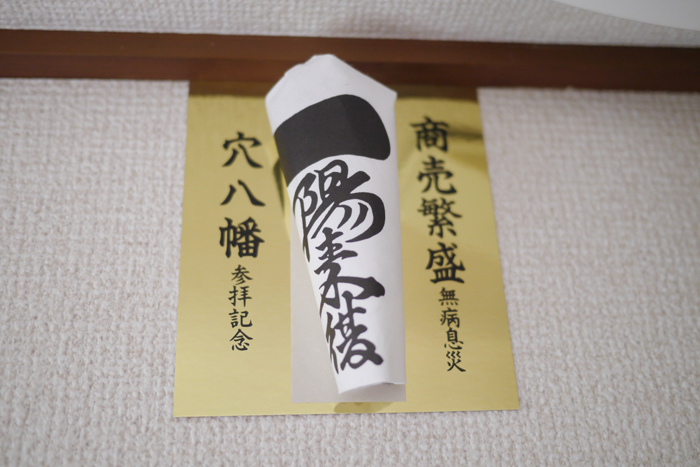 商売繁盛 無病息災
一陽来復
穴八幡 参拝記念